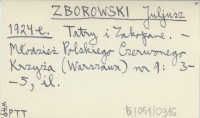 ZBOROWSKI Juljusz
1924 r. Tatry i Zakopane. -
Młodzież Polskiego Czerwonego
Krzyża (Warszawa) nr 9: 3-
-5, il.
PTT